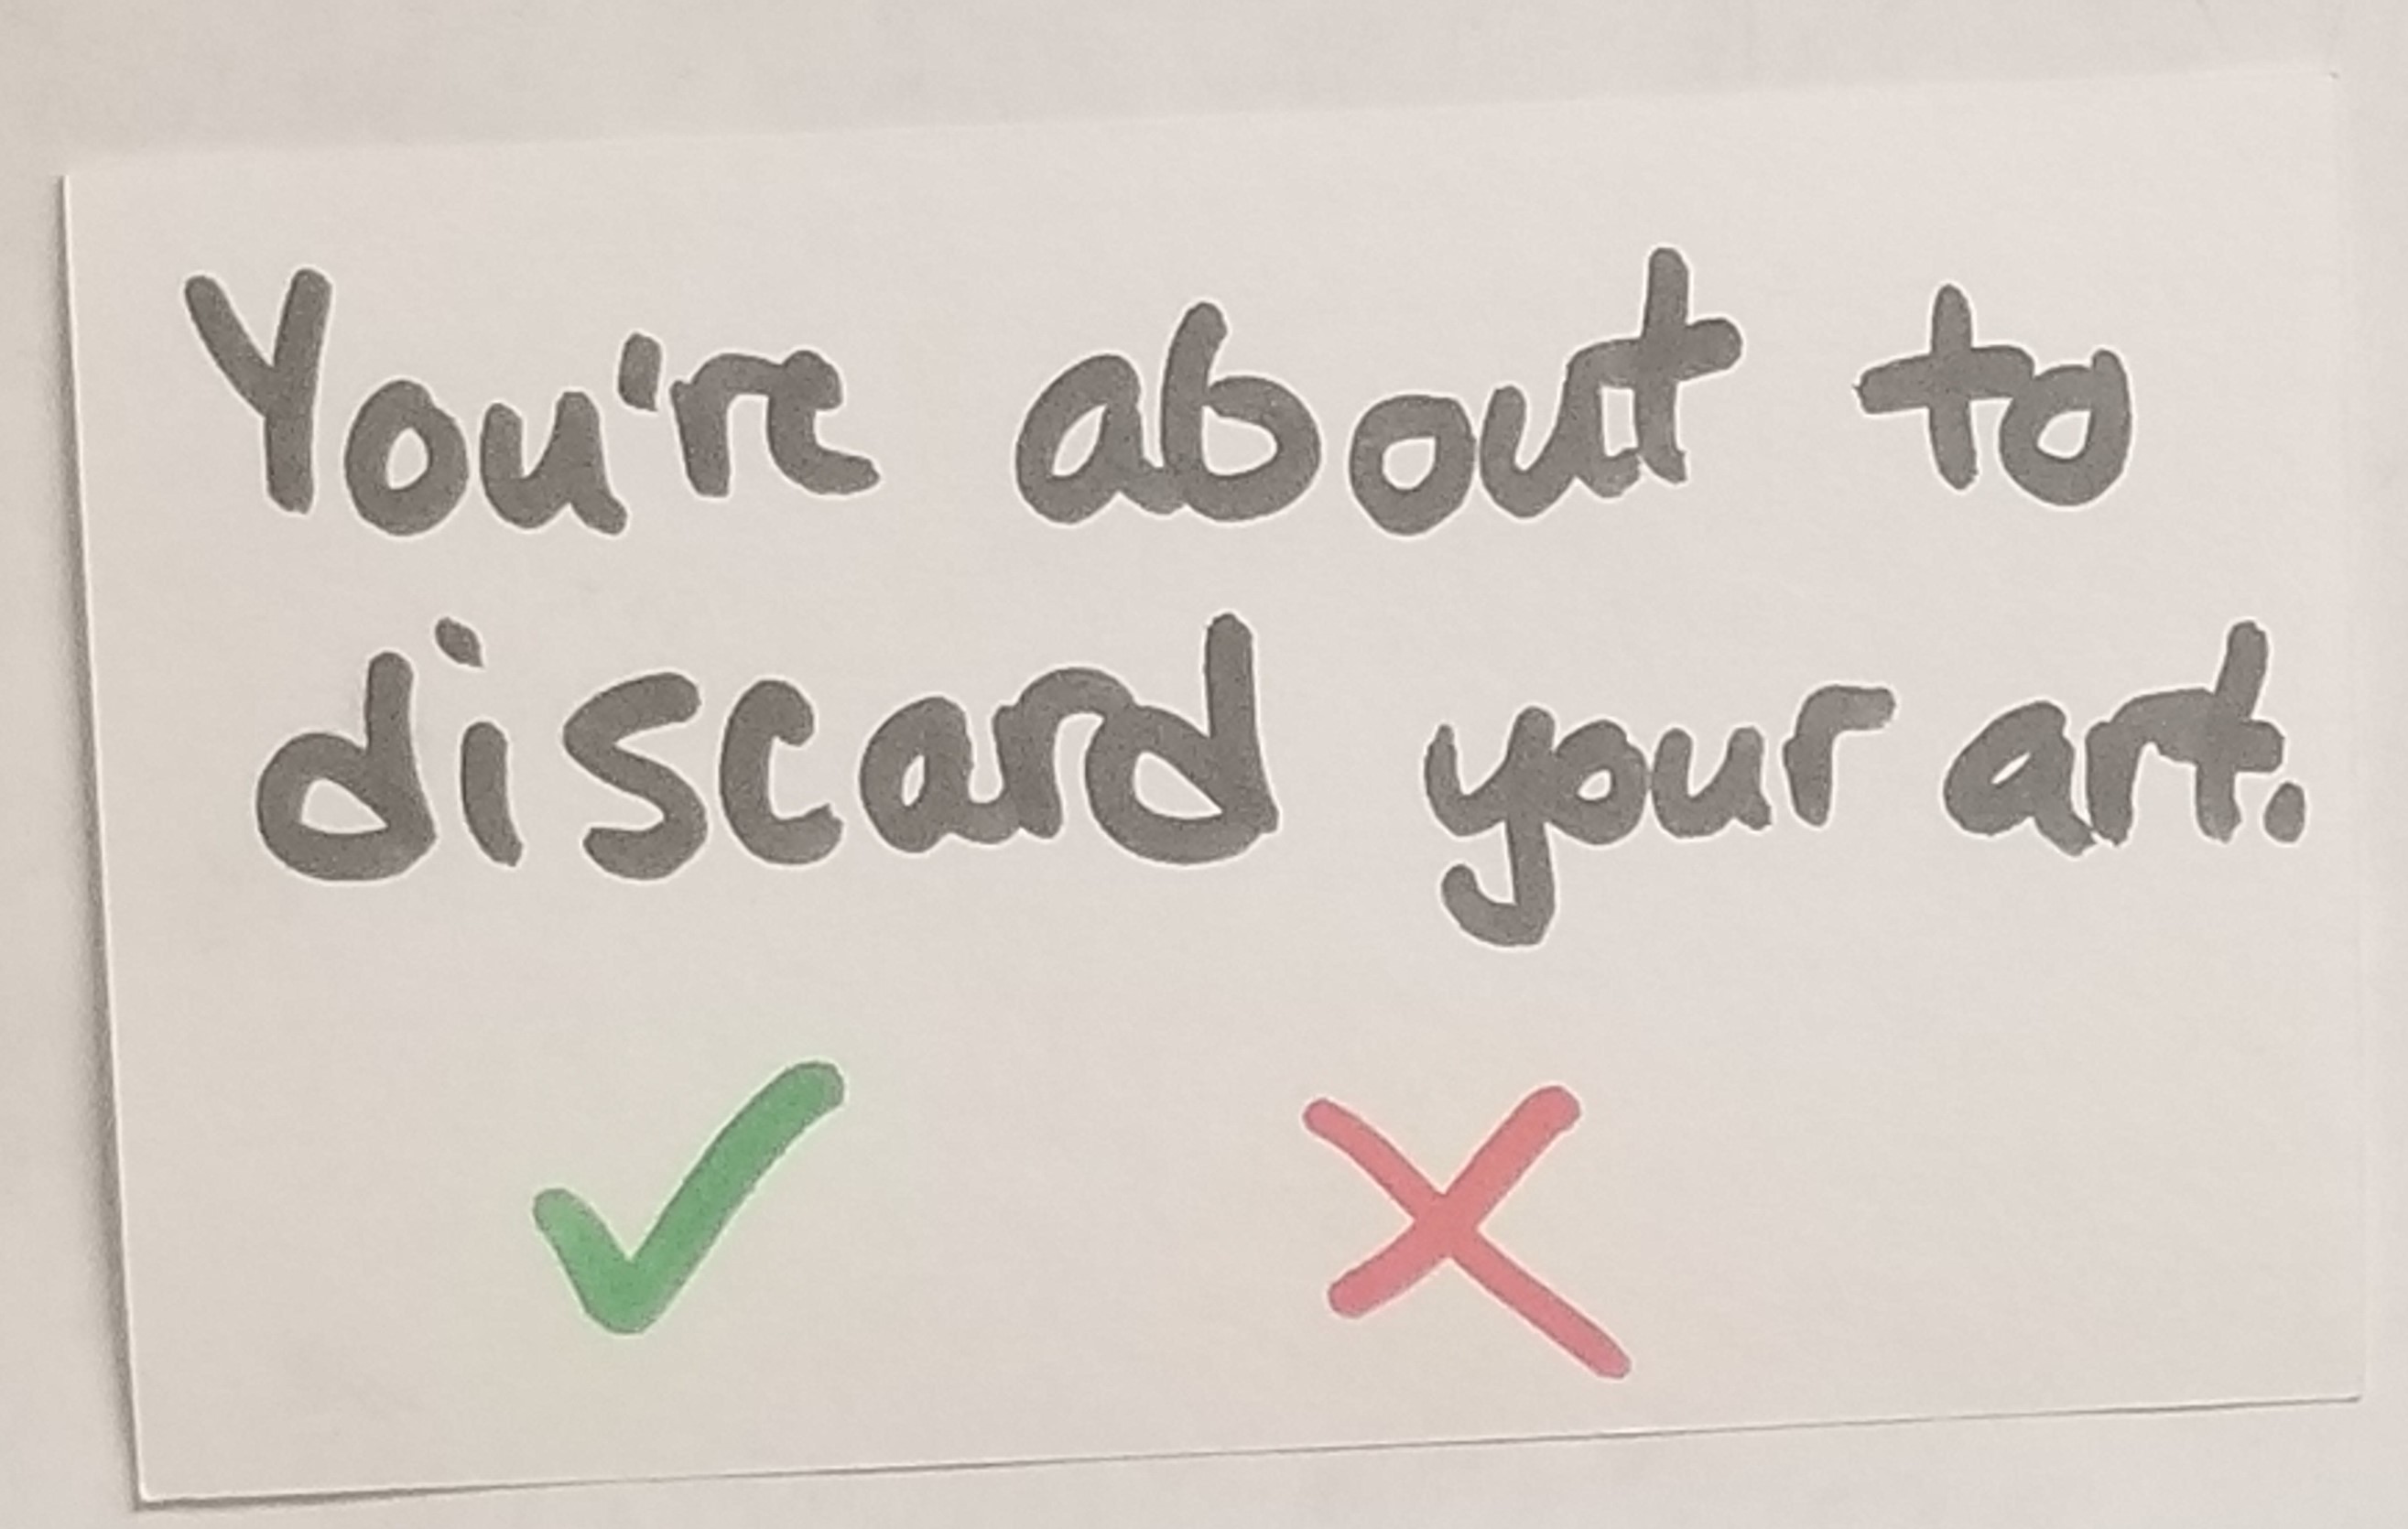 You're about to
discard your art.